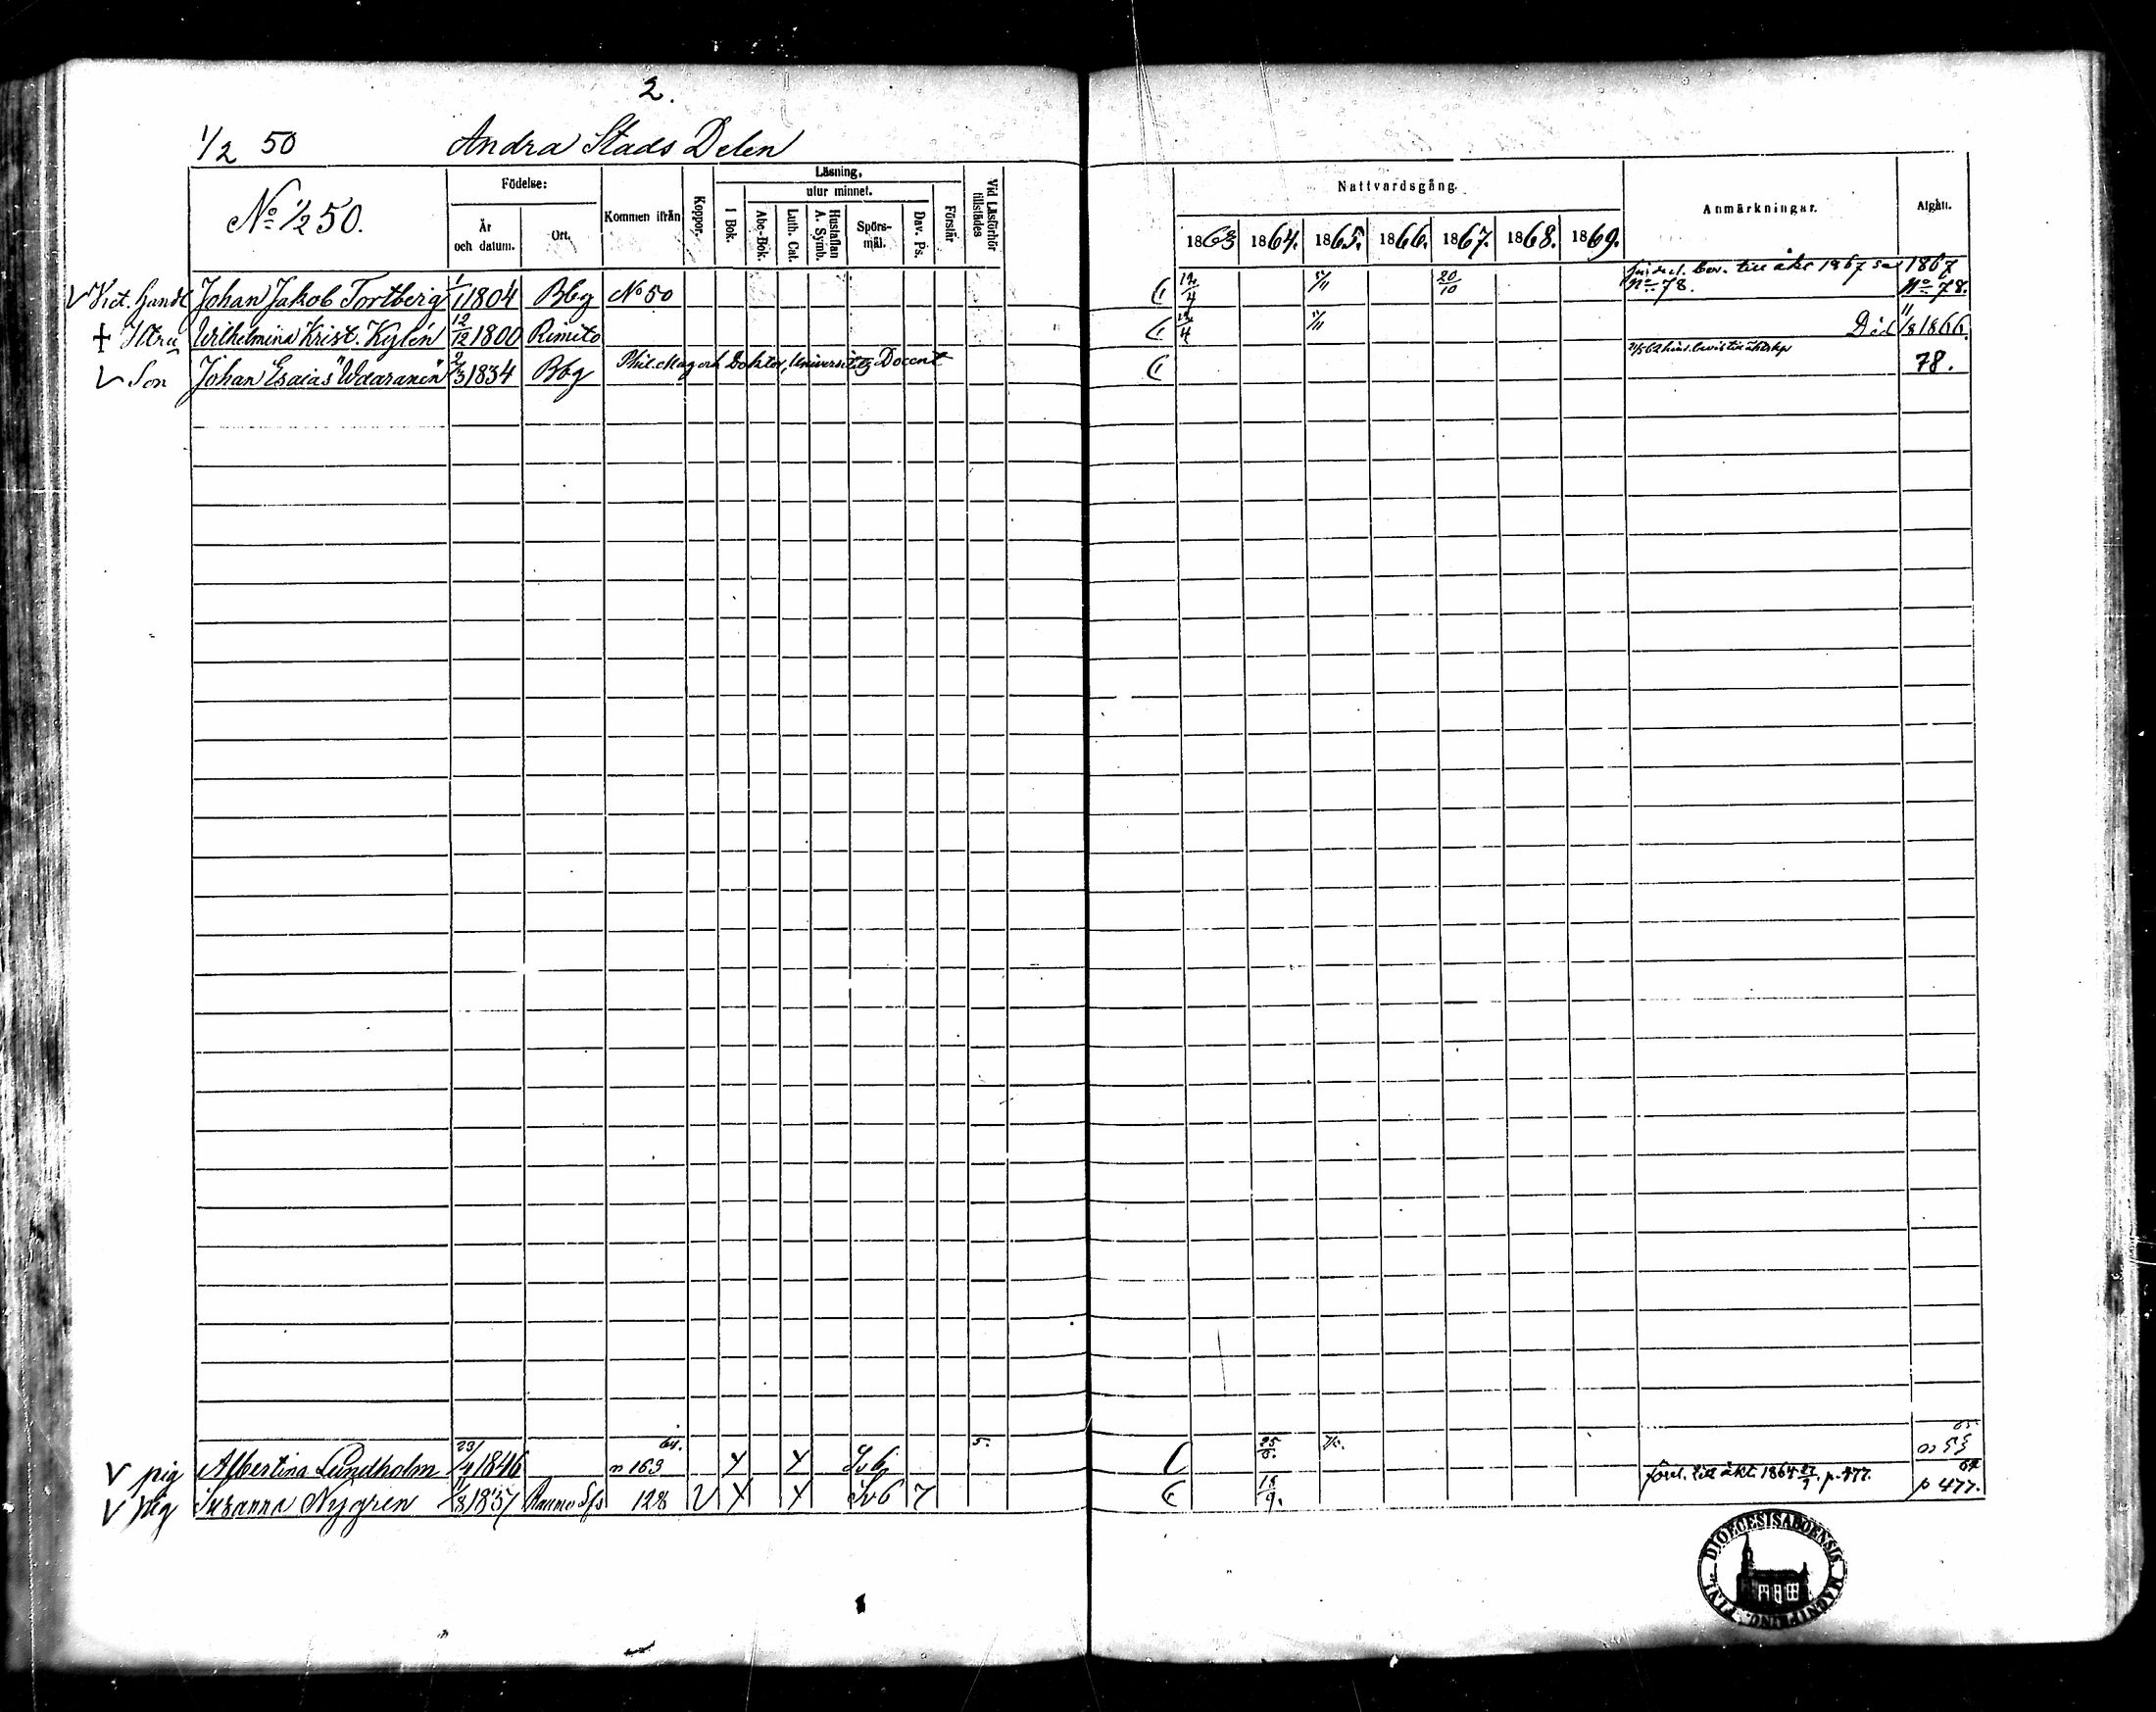 2.
1/2 50 Andra Stads Delen
No 1/2 50.
Födelse:
År och datum.
Ort.
Kommen ifrån
Koppor.
Läsning,
I Bok.
utur minnet.
Abc-Bok.
Luth. Cat.
Hustaflan A. Symb.
Spörsmål.
Dav. Ps.
Förstår
Vid Läsförhör tillstädes
Nattvardsgång.
1863 1864. 1865. 1866. 1867. 1868. 1869.
Anmärkningar.
Afgått.
Vict. Handl Johan Jakob Tortberg 1/1 1804 Bbg No 50 19/4 5/11 20/10 till äkt 1867 No 78. 1867 No 78.
† Hru Wilhelmina Krist. Kylén 12/12 1800 Rimito 19/4 5/11 Död 11/8 1866.
Son Johan Esaias "Waaranen" 2/3 1834 Bbg Phil. Mag och Doktor, Universitets Docent 78.
pig Albertina Lundholm 23/4 1846 64. n 163 Sv 6 5. 25/6. 65
pig Susanna Nygren 1837 Raumo 128 Sv 6 7 18/9. förel. till äkt. 1864 27/9. p. 477. 64 p 477.
DIOECESIS ABOENSIS MAGNI PRINC. FINL.